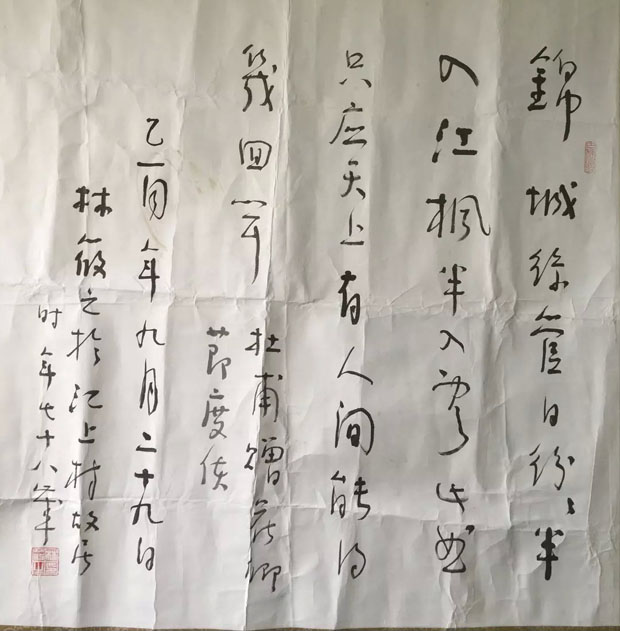 錦城絲管日紛〻半
入江楓半入雲此曲
只应天上有人间能得
幾回闻
杜甫贈花卿
節度使
乙酉年九月二十九日
林筱之於江上村故居
时年七十八岁